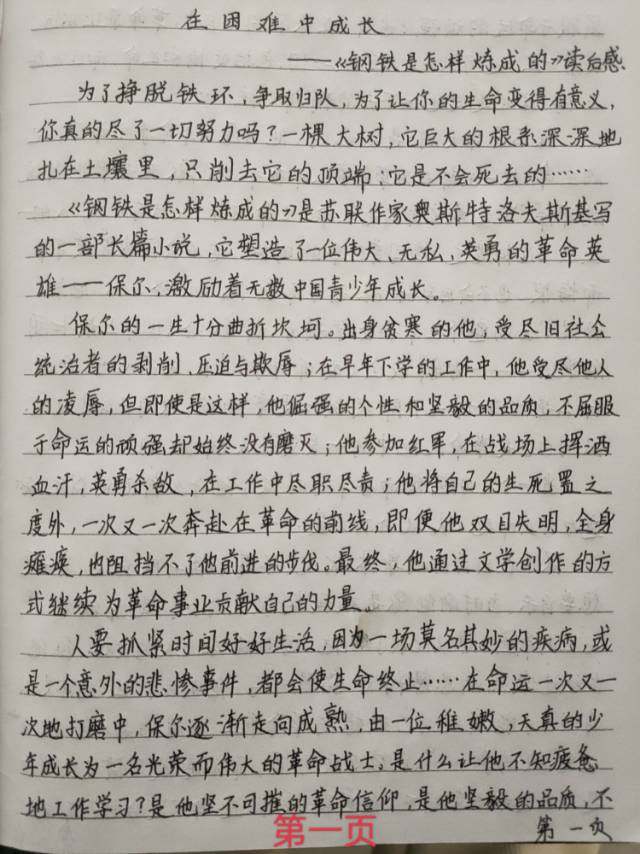 在困难中成长
——《钢铁是怎样炼成的》读后感
为了挣脱铁环，争取归队，为了让你的生命变得有意义，
你真的尽了一切努力吗？一棵大树，它巨大的根系深深地
扎在土壤里，只削去它的顶端：它是不会死去的……
《钢铁是怎样炼成的》是苏联作家奥斯特洛夫斯基写
的一部长篇小说，它塑造了一位伟大、无私，英勇的革命英
雄——保尔，激励着无数中国青少年成长。
保尔的一生十分曲折坎坷。出身贫寒的他，受尽旧社会
统治者的剥削、压迫与欺辱；在早年下学的工作中，他受尽他人
的凌辱，但即使是这样，他倔强的个性和坚毅的品质，不屈服
于命运的顽强却始终没有磨灭；他参加红军，在战场上挥洒
血汗，英勇杀敌，在工作中尽职尽责；他将自己的生死置之
度外，一次又一次奔赴在革命的前线，即便他双目失明，全身
瘫痪，也阻挡不了他前进的步伐。最终，他通过文学创作的方
式继续为革命事业贡献自己的力量。
人要抓紧时间好好生活，因为一场莫名其妙的疾病，或
是一个意外的悲惨事件，都会使生命终止……在命运一次又一
次地打磨中，保尔逐渐走向成熟，由一位稚嫩，天真的少
年成长为一名光荣而伟大的革命战士，是什么让他不知疲惫
地工作学习？是他坚不可摧的革命信仰，是他坚毅的品质，不
第一页
第一页